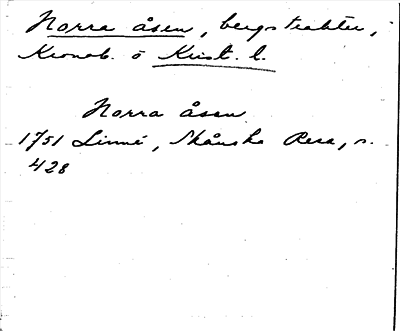 Norra åsen, bergstrakter,
Kronob. o Krist. l.
Norra åsen
1751 Linné, Skånska Resa, s.
428